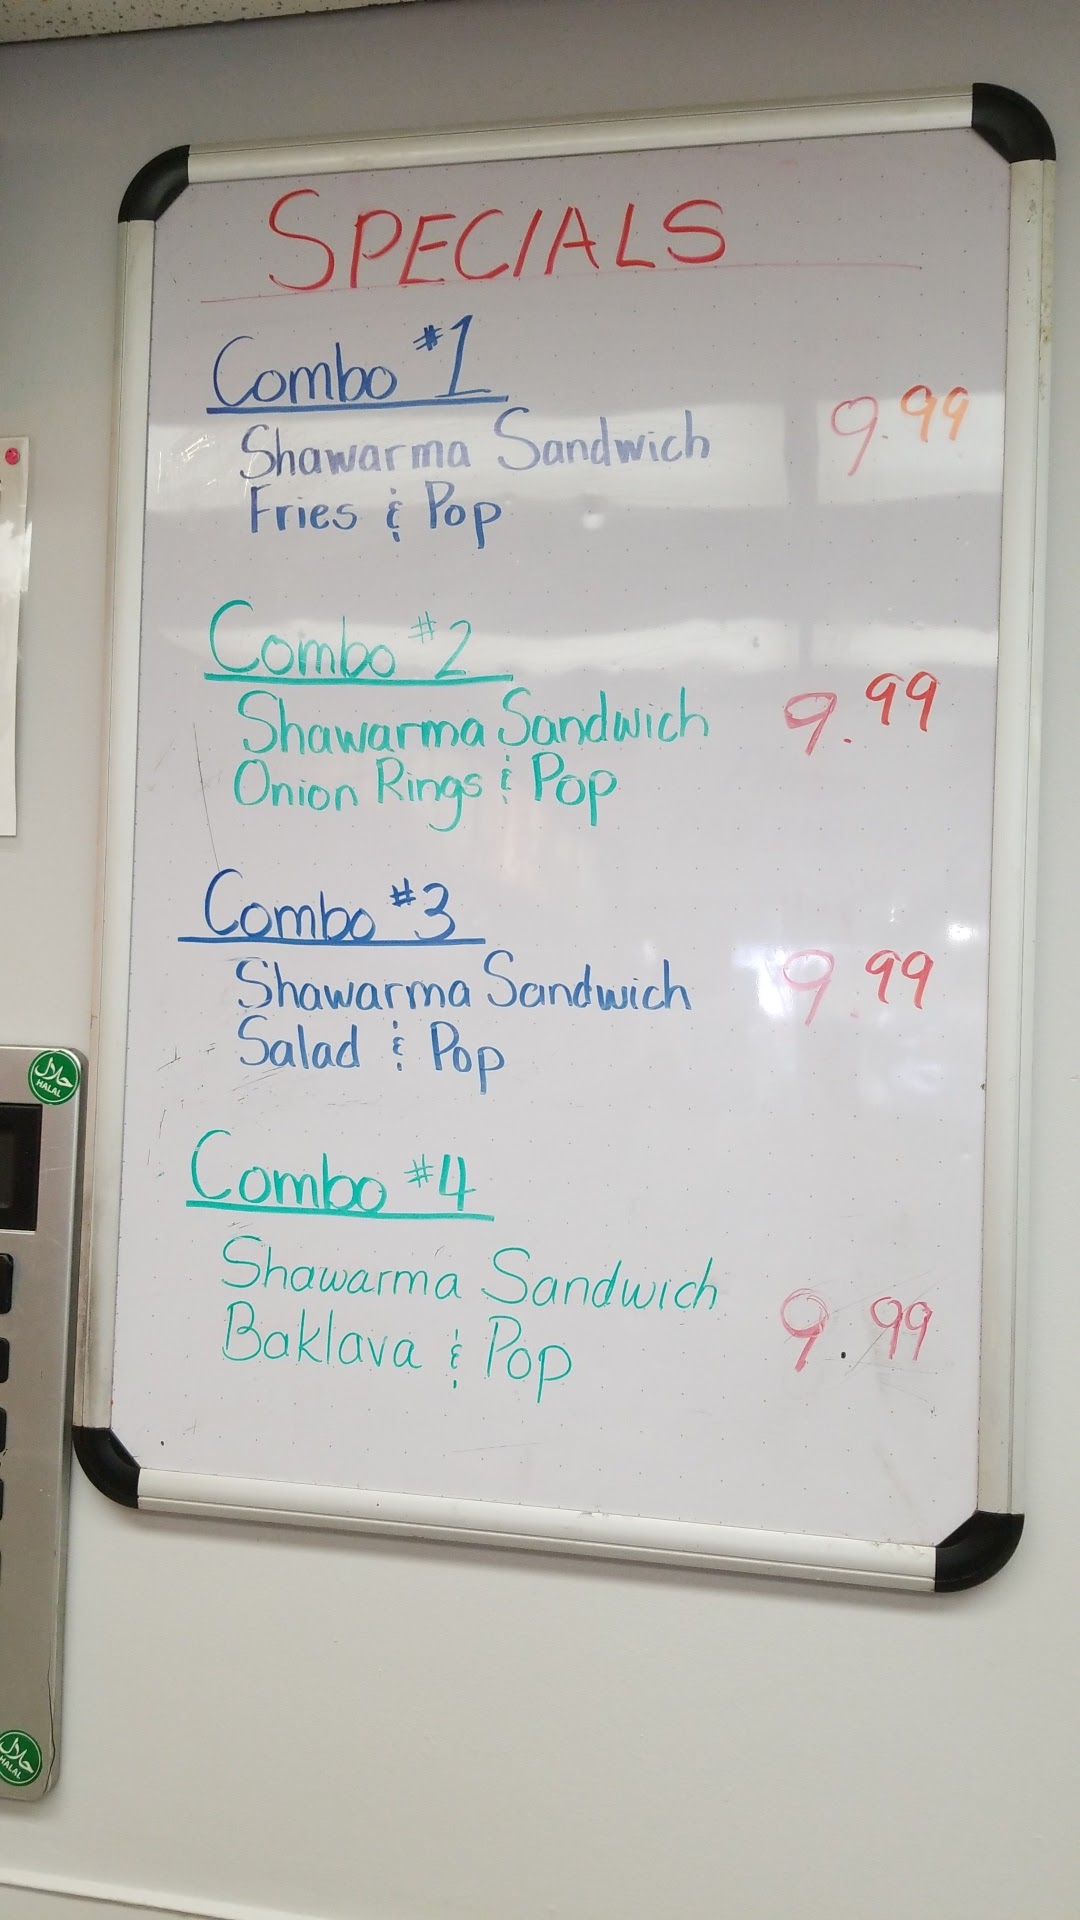 SPECIALS
Combo #1
Shawarma Sandwich 9.99
Fries & Pop
Combo #2
Shawarma Sandwich 9.99
Onion Rings & Pop
Combo #3
Shawarma Sandwich 9.99
Salad & Pop
Combo #4
Shawarma Sandwich
Baklava & Pop 9.99
حلال
HALAL
حلال
HALAL